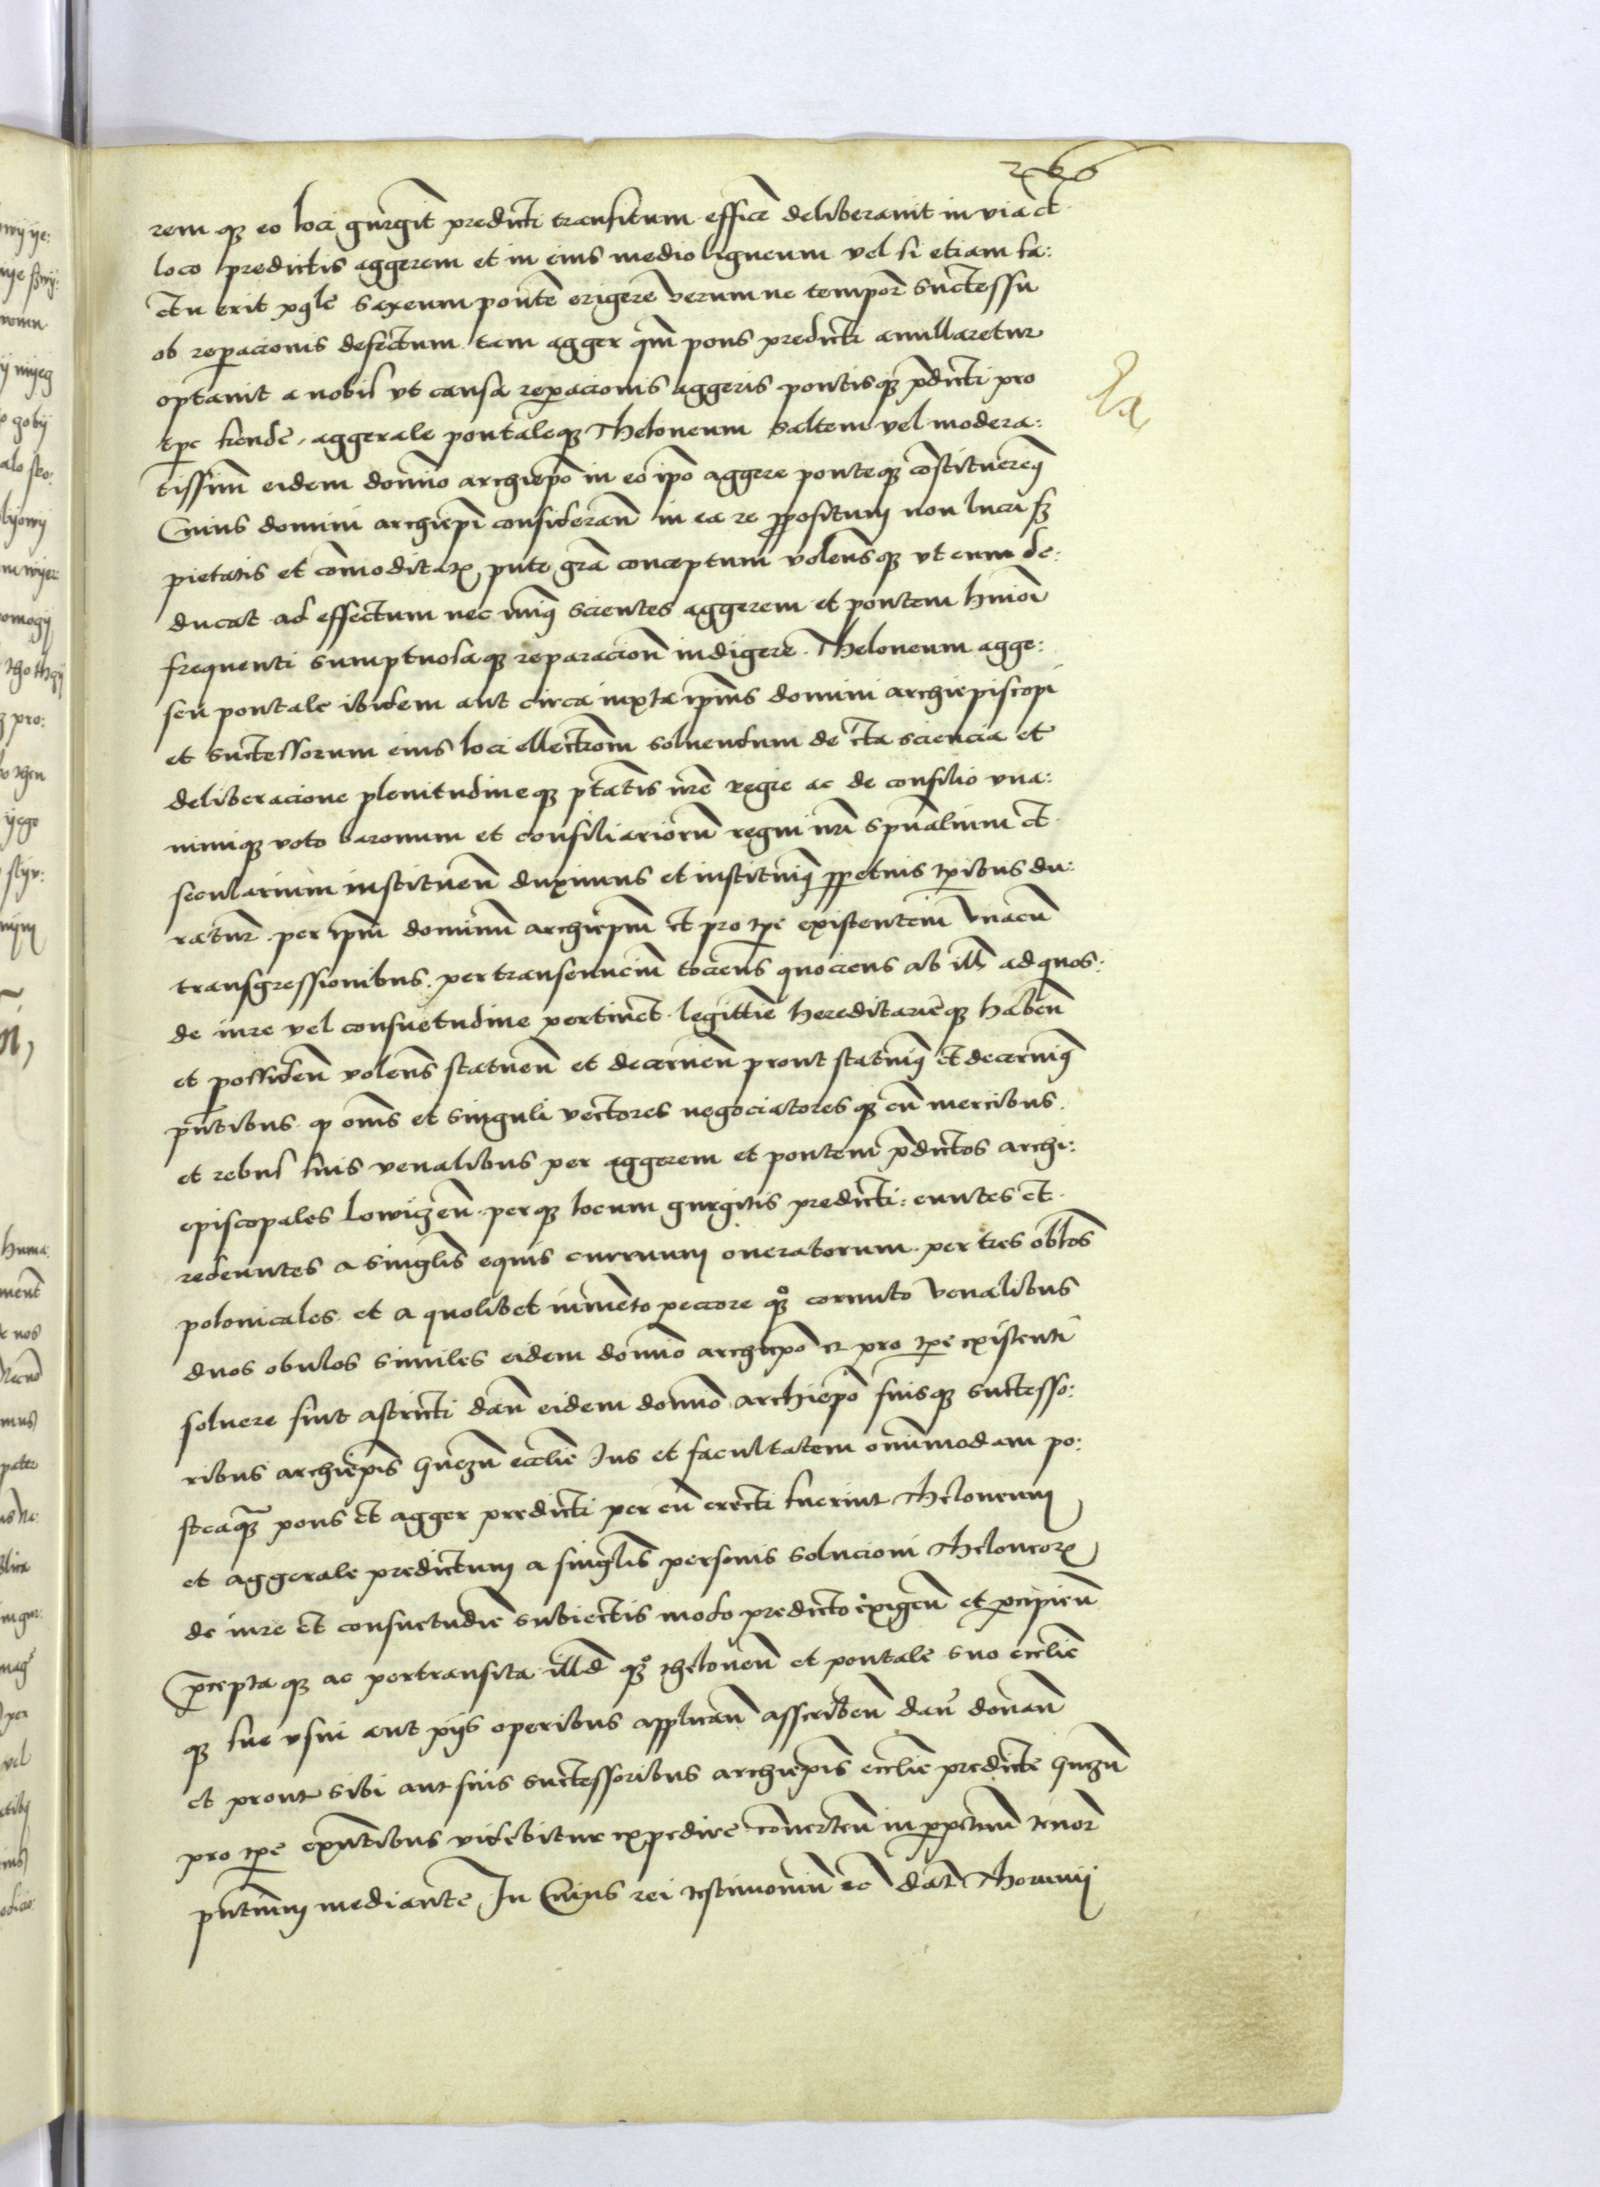 rem qz eo loci gurgit predicti transitum efficē deliberauit in via et
loco predictis aggerem et in eius medio ligneum vel si etiam fa:
ctu erit pgle saxeum pontē erigerē verum ne tempoȓ successu
ob repacionis defectum tam agger qm̄ pons predicti anullaretur
optauit a nobis vt causa repacionis aggeris pontisqz p̄dicti pro
tpe fiende aggerale pontaleqz Theloneum saltem vel modera:
tissim̄ eidem domīo archiepō in eo ipō aggere ponteqz cōstitueremꝰ
Cuius domini archiepi consideran̄ in ea re ppositum non lucri sz
pietatis et cōmoditatꝝ pute gr̄a conceptum volensqz vt eum de:
ducat ad effectum nec minꝰ scientes aggerem et pontem hmōi
frequenti sumptuosaqz reparacion̄ indigere Theloneum agge:
seu pontale ibidem aut circa iuxta ipīus domini archiepiscopi
et successorum eius loci ellectiom̄ soluendum de cta sciencia et
deliberacione plenitudineqz ptātis nr̄e regie ac de consilio vna:
nimiqz voto baronum et consiliariorū regni nrī spūalium et
secularium instituen̄ duximus et instituimꝰ ppetuis tpibus du:
ratur̄ per ipm̄ dominū archiepm̄ et pro tpe existentem vnacū
transgressionibus per transeuncium tociens quociens ab ill̄ ad quos:
de iure vel consuetudine pertinet legittīe hereditarieqz haben̄
et possiden̄ volens statuen̄ et decernen̄ prout statuimꝰ et decernimꝰ
pn̄tibus qꝫ om̄s et singuli vectores negociatoresqz cū mercibus
et rebus suis venalibus per aggerem et pontem p̄dictos archi:
episcopales Lowiczen̄ perqz locum gurgitis predicti: euntes et
redeuntes a singlīs equis curruum oneratorum per tres oblos
polonicales et a quolibet iumēto peccore qꝫ cornuto venalibus
duos obulos similes eidem domīo archiepō et pro tpe existenti
soluere sint astricti dan̄ eidem domīo archiepō suisqz successo:
ribus archiepīs Gneznen̄ eccl̄ie Ius et facultatem omnimodam po:
steaqz pons et agger predicti per eū erecti fuerint Theloneum
et aggerale predictum a singlīs personis solucioni Theloneoꝝ
de iure et consuetudīe subiectis modo predicto exigen̄ et pcipien̄
p̄ceptaqz ac pertransita illd̄ qꝫ thelonen̄ et pontale suo eccl̄ie
qz sue vsui aut pijs operibus applican̄ asscriben̄ dan̄ donan̄
et prout sibi aut suis successoribus archiepīs eccl̄ie predicte Gnezn̄
pro tpe exn̄tibus videbitur expedire cōuerten̄ in ppetuum tenoȓ
pn̄tium mediante In Cuius rei testimoniū etc dat̄ Thorunij